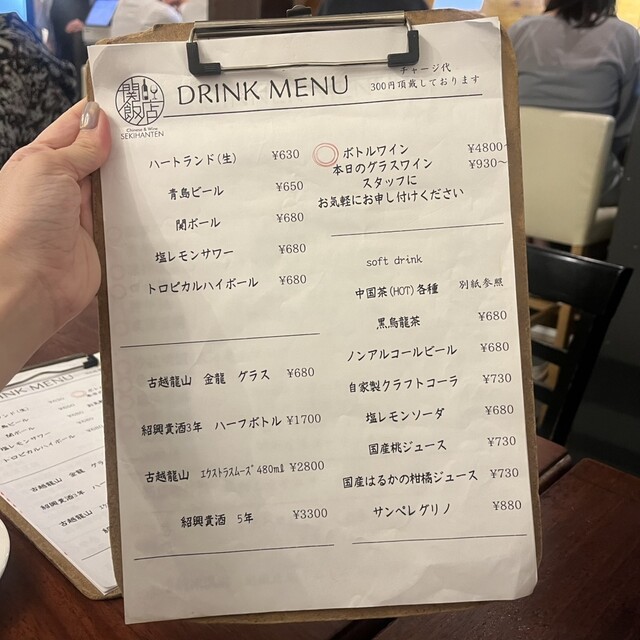 関飯店
Chinese & Wine
SEKIHANTEN
DRINK MENU
チャージ代
300円頂戴しております
ハートランド(生) ¥630
青島ビール ¥650
関ボール ¥680
塩レモンサワー ¥680
トロピカルハイボール ¥680
古越龍山 金龍 グラス ¥680
紹興貴酒3年 ハーフボトル ¥1700
古越龍山 エクストラスムーズ 480ml ¥2800
紹興貴酒 5年 ¥3300
ボトルワイン ¥4800~
本日のグラスワイン ¥930~
スタッフに
お気軽にお申し付けください
soft drink
中国茶(HOT)各種 別紙参照
黒烏龍茶 ¥680
ノンアルコールビール ¥680
自家製クラフトコーラ ¥730
塩レモンソーダ ¥680
国産桃ジュース ¥730
国産はるかの柑橘ジュース ¥730
サンペレグリノ ¥880
NK MENU
ランド(生)
ビール
関ボール
レモンサワー
トロピカルハイボール
古越龍山 金龍 グ
紹興貴酒3年 ハー
古越龍山
紹興貴酒